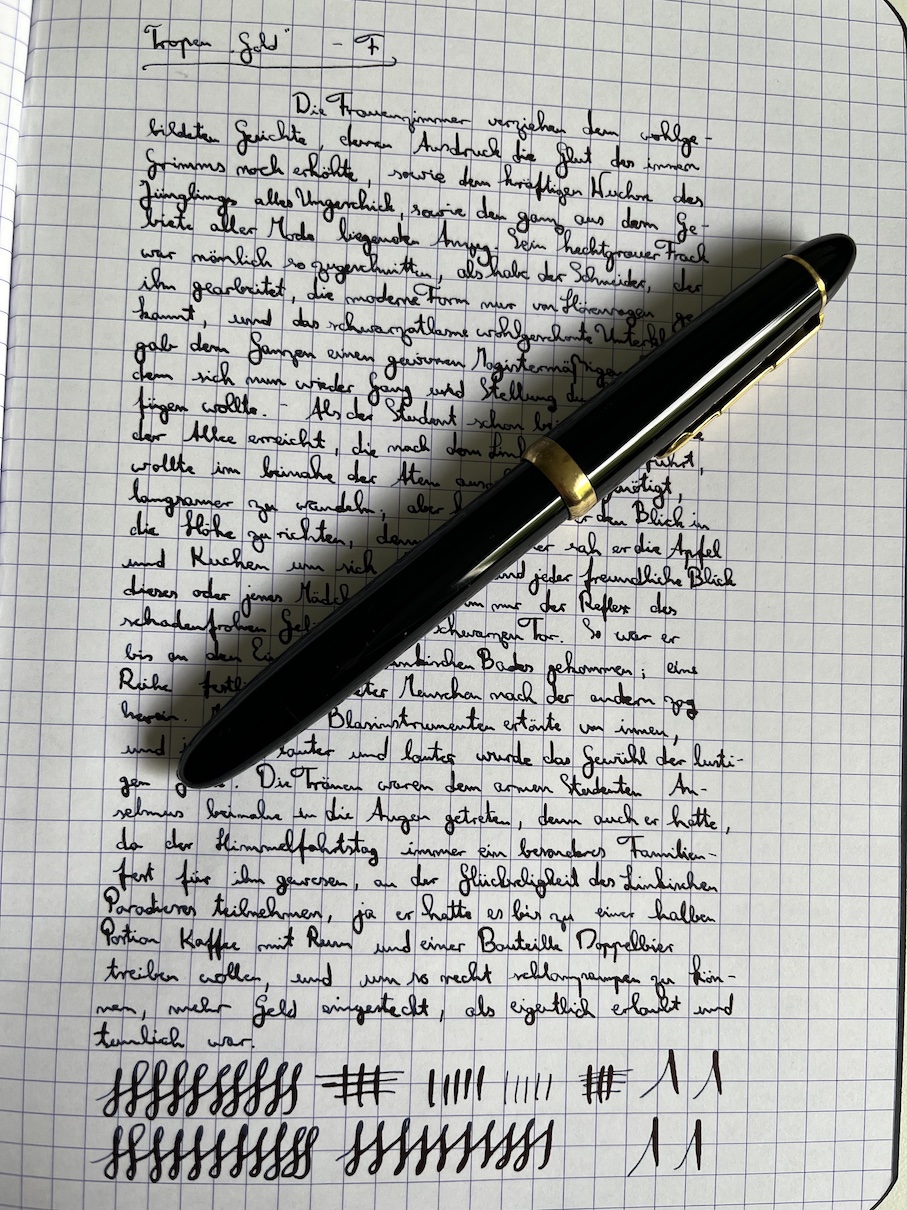 Tropen „Gold" - F
Die Frauenzimmer verziehen dem wohlge-
bildeten Gesichte, dessen Ausdruck die Glut des innern
Grimms noch erhöhte, sowie dem kräftigen Wuchse des
Jünglings alles Ungeschick, sowie den ganz aus dem Ge-
biete aller Mode liegenden Anzug. Sein hechtgrauer Frack
war nämlich so zugeschnitten, als habe der Schneider, der
ihn gearbeitet, die moderne Form nur von Hörensagen ge
kannt, und das schwarzatlasne wohlgeschonte Unterkl
gab dem Ganzen einen gewissen Magistermäßigen
dem sich nun wieder Gang und Stellung du
fügen wollte. - Als der Student schon bei
der Allee erreicht, die nach dem Link führt,
wollte im beinahe der Atem aus genötigt,
langsamer zu wandeln; aber den Blick in
die Höhe zu richten, denn er sah er die Äpfel
und Kuchen um sich und jeder freundliche Blick
dieses oder jenes Mädch nur der Reflex des
schadenfrohen Gel schwarzen Tor. So war er
bis an den Ei inkischen Bades gekommen; eine
Reihe festli eter Menschen nach der andern zog
herein. Blasinstrumenten ertönte von innen,
und lauter und lauter wurde das Gewühl der lusti-
gen Die Tränen waren dem armen Studenten An-
selmus beinahe in die Augen getreten, denn auch er hatte,
da der Himmelfahrtstag immer ein besonderes Familien-
fest für ihn gewesen, an der Glückseligkeit des Linkischen
Paradieses teilnehmen, ja er hatte es bis zu einer halben
Portion Kaffee mit Rum und einer Bouteille Doppelbier
treiben wollen, und um so recht schlampampen zu kön-
nen, mehr Geld eingesteckt, als eigentlich erlaubt und
tunlich war.